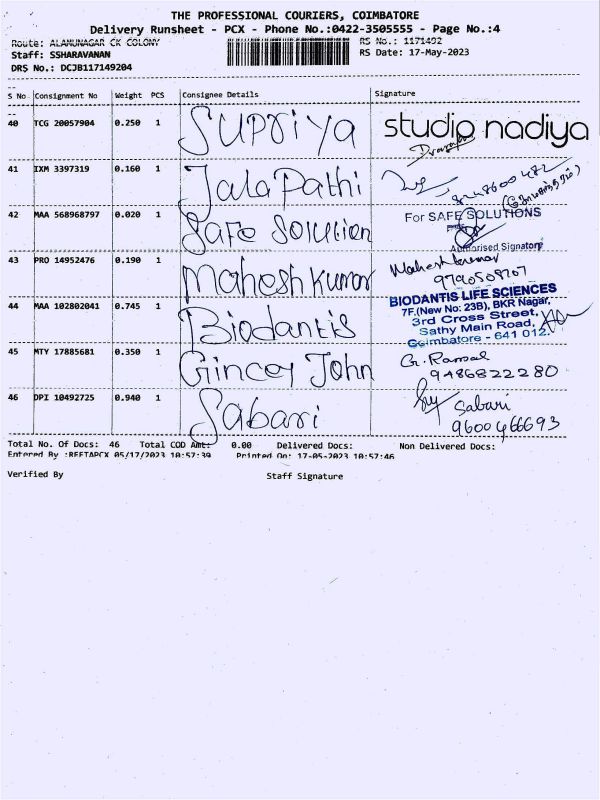 THE PROFESSIONAL COURIERS, COIMBATORE
Delivery Runsheet - PCX - Phone No.:0422-3505555 - Page No.:4
Route: ALAMUNAGAR CK COLONY RS No.: 1171492
Staff: SSHARAVANAN RS Date: 17-May-2023
DRS No.: DCJB117149204
S No Consignment No Weight PCS Consignee Details Signature
40 TCG 20057904 0.250 1 Supriya studio nadiya
41 IXM 3397319 0.160 1 Jala Pathi
42 MAA 568968797 0.020 1 Safe Solution For SAFE SOLUTIONS
Authorised Signatory
43 PRO 14952476 0.190 1 Mahesh Kumar Mahesh Kumar
9790508707
44 MAA 102802041 0.745 1 Biodantis BIODANTIS LIFE SCIENCES
7F,(New No: 23B), BKR Nagar,
3rd Cross Street,
Sathy Main Road,
Coimbatore - 641 012.
45 MTY 17885681 0.350 1 Gincey John G. Ramal
9486822280
46 DPI 10492725 0.940 1 Sabari Sabari
9600466693
Total No. Of Docs: 46 Total COD Amt: 0.00 Delivered Docs: Non Delivered Docs:
Entered By :REETAPCX 05/17/2023 10:57:39 Printed On: 17-05-2023 10:57:46
Verified By Staff Signature